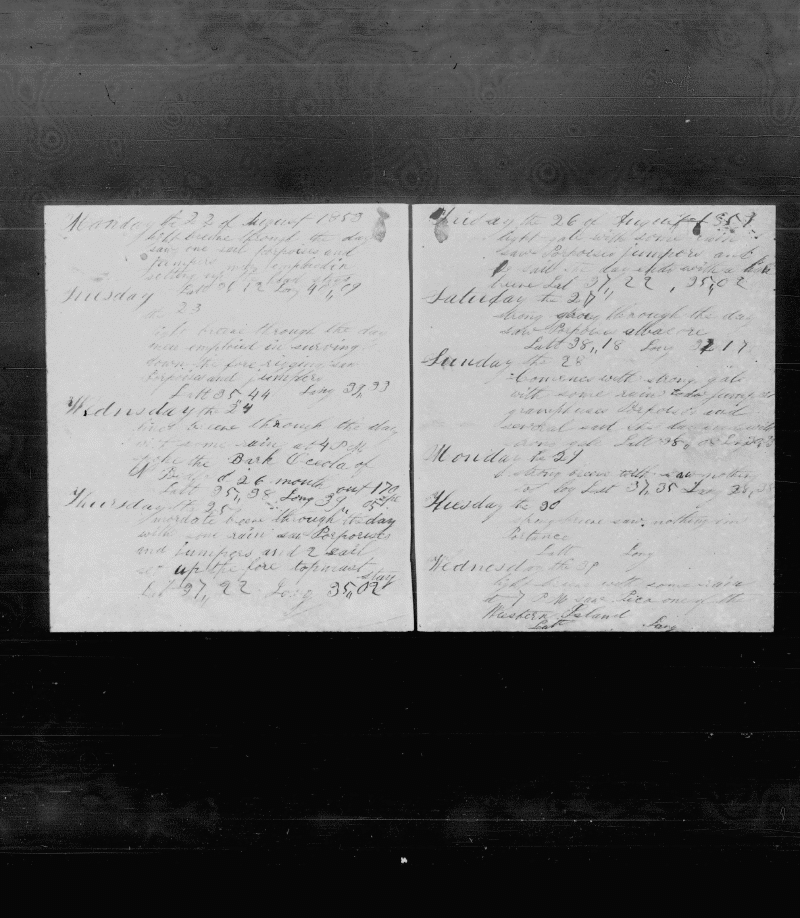 Monday the 22 of August 1853
light breeze through the day
saw one sail porpoises and
jumpers
Latt 36 12 Long 41,,19
Tuesday
the 23
light breeze through the day
men employed in
down the fore rigging saw
porpoises and jumpers
Latt 35 44 Long 39,,33
Wednesday the 24
breeze through the day
with some rain at 4 P M
spoke the Bark Oceola of
N B 26 month out 170
Latt 35,,38 Long 39,, 05
Thursday the 25
breeze through the day
with some rain saw Porpoises
and Jumpers and 2 sail
set up the fore topmast stay
Lat 37,,22 Long 35,,02
Friday the 26 of August 1853
light gale with some rain
saw Porpoises jumpers and
sail the day ends with a
breeze Latt 37,, 22 , 35,,02
Saturday the 27
strong through the day
saw Porpoises albacore
Latt 38,,18 Long 17
Sunday the 28
Comences with strong gale
with some rain
Porpoises and
several sail the day ends with
strong gale Latt 38
Monday the 29
strong breeze saw nothing
Latt 37,,35 Long
Tuesday the 30
breeze saw nothing in
Latt Long
Wednesday the 31
light breeze with some rain
at 7 P M saw Pico one of the
Western Island
Latt Long